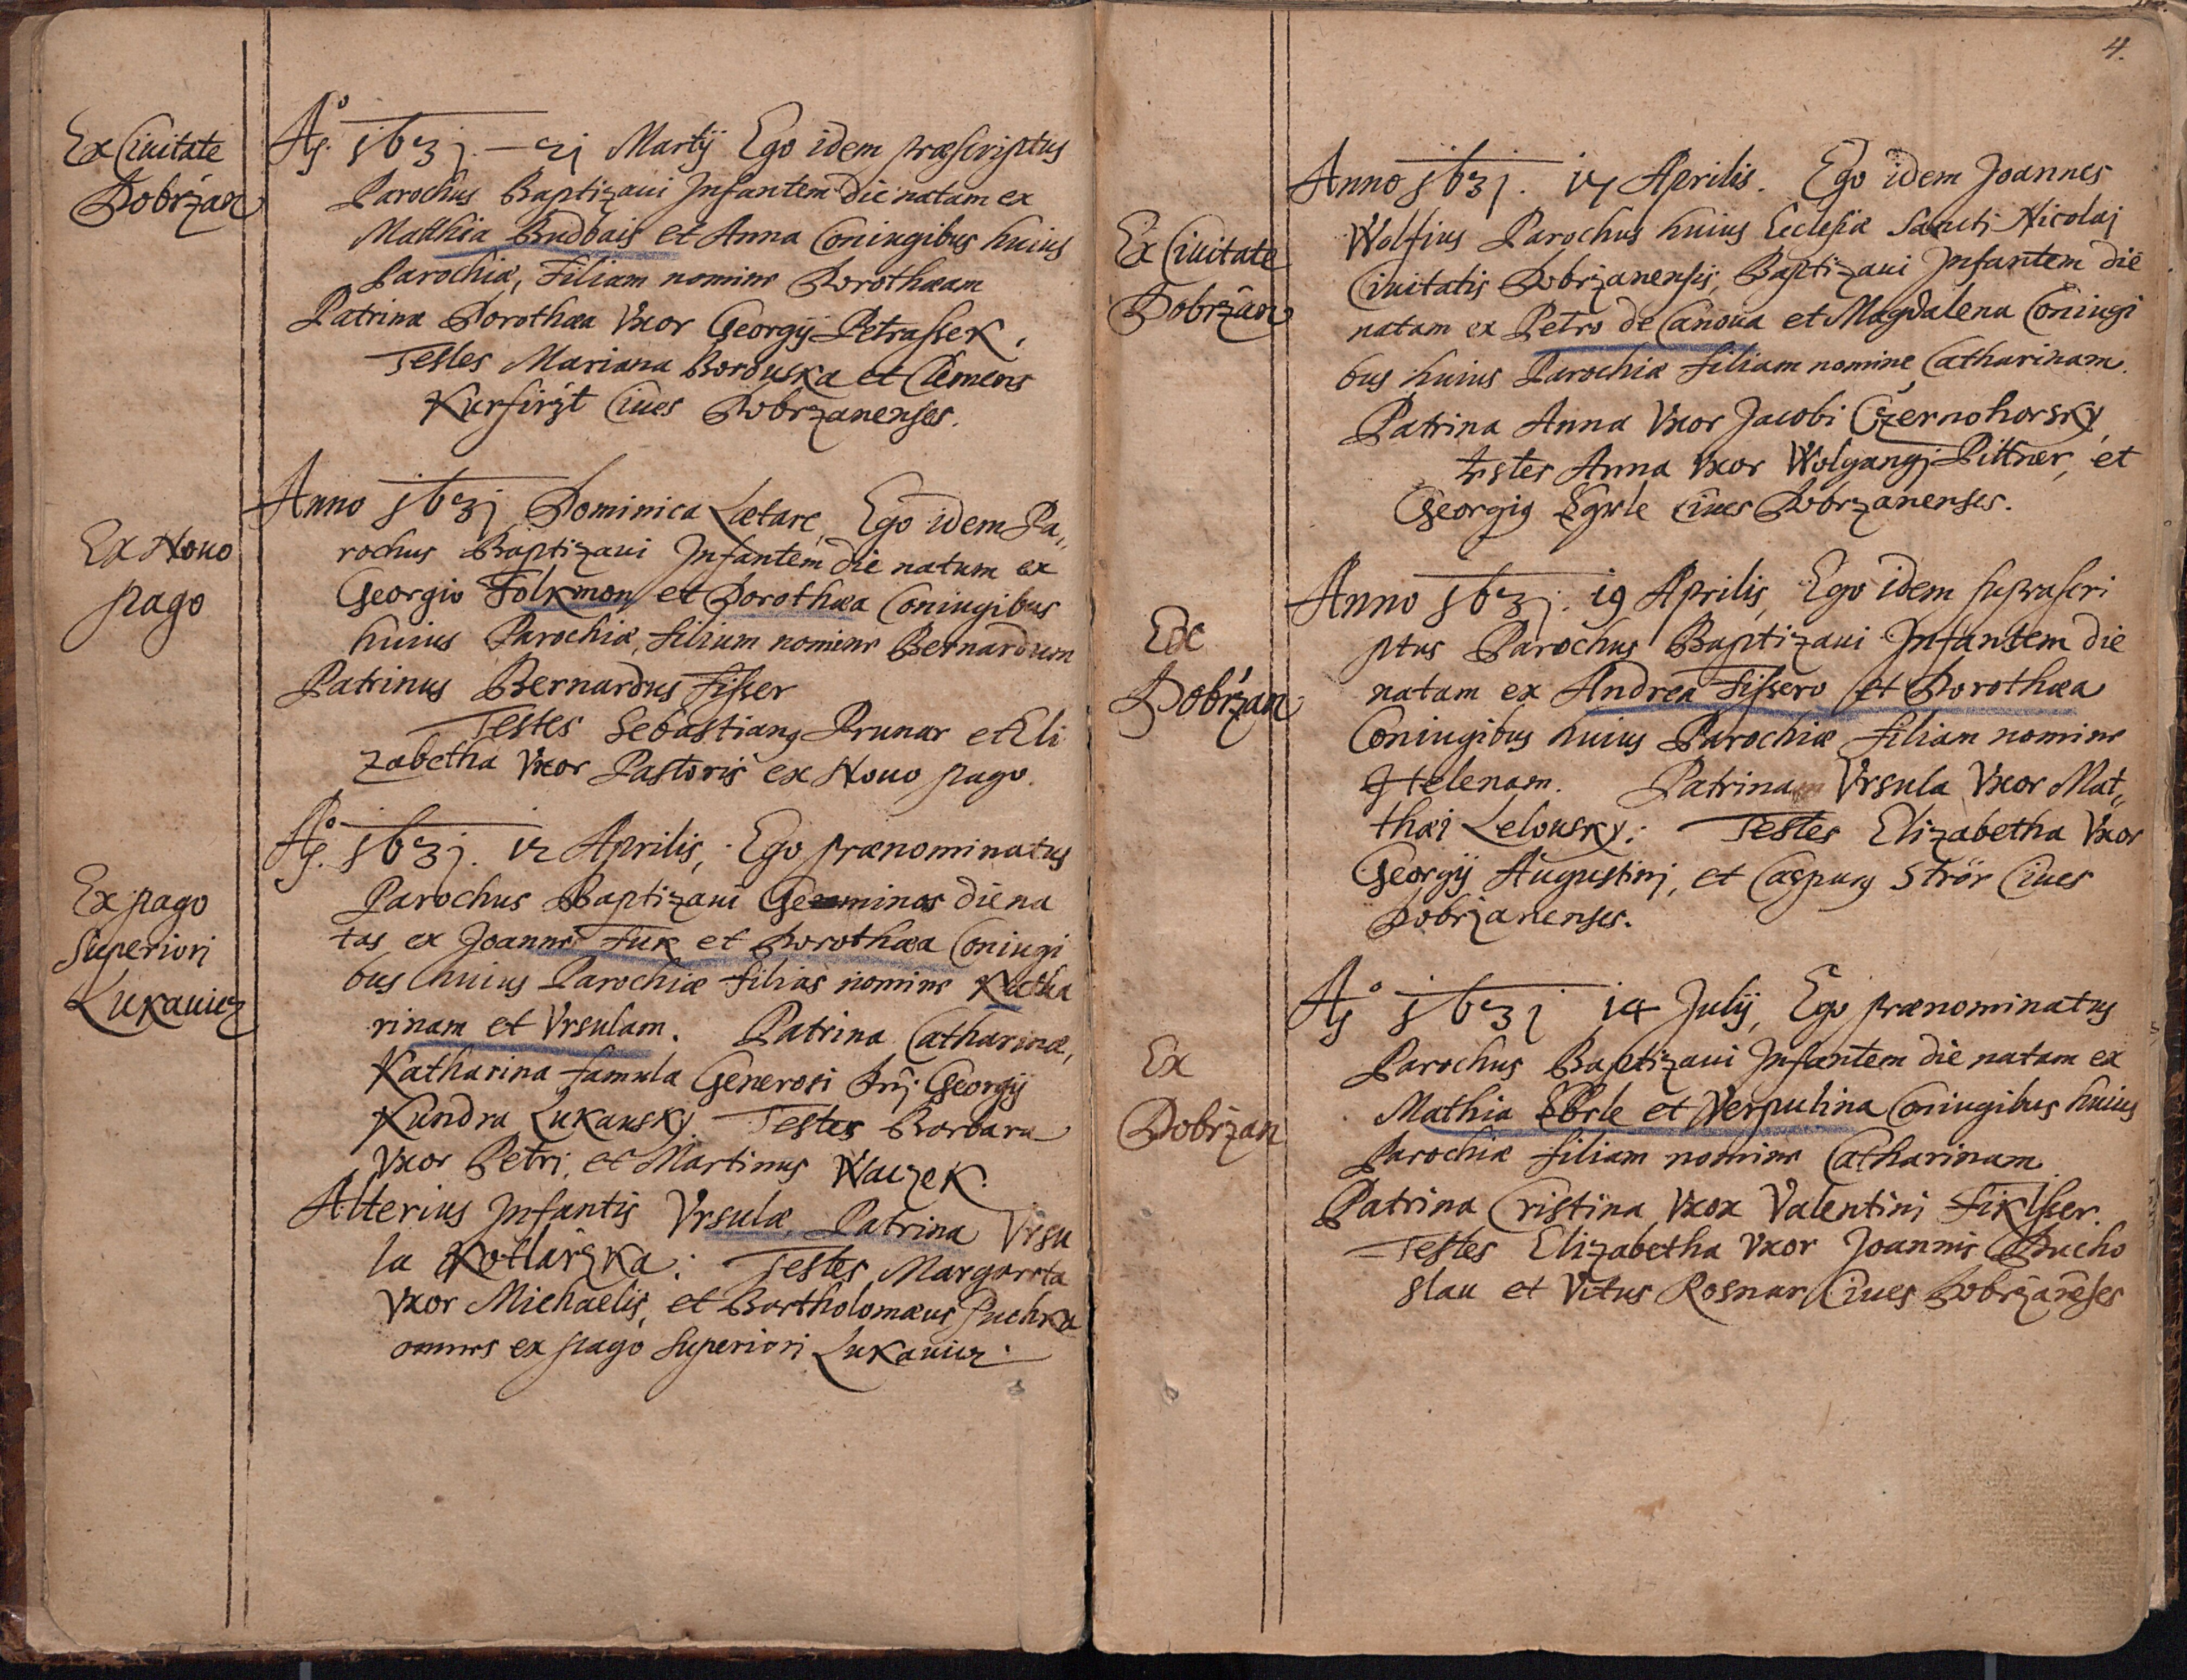 Ex Ciuitate
Dobržan
Aō. 1631. — 21 Martij Ego idem præscriptus
Parochus Baptizaui Infantem die natam ex
Matthia Budbais et Anna Coniugibus huius
Parochiæ, Filiam nomine Dorothæam
Patrina Dorothæa Vxor Georgij Petrassek,
Testes Mariana Boruska et Clemens
Kurfirzt Ciues Dobrzanenses.
Ex Nouo
pago
Anno 1631 Dominica Lætare, Ego idem Pa„
rochus Baptizaui Infantem die natum ex
Georgio Folkmon et Dorothæa Coniugibus
huius Parochiæ, filium nomine Bernardum
Patrinus Bernardus Fisser
Testes Sebastianus Prunar et Eli
zabetha Vxor Pastoris ex Nouo pago.
Ex pago
Superiori
Lukauicz
Aō. 1631. 12 Aprilis, Ego prænominatus
Parochus Baptizaui Geminas die na
tas ex Joanne Fuk et Dorothæa Coniugi
bus huius Parochiæ filias nomine Katha
rinam et Vrsulam. Patrina Catharinæ,
Katharina famula Generosi Dnj. Georgij
Kundra Lukausky Testes Barbara
Vxor Petri, et Martinus Waczek.
Alterius Infantis Vrsulæ Patrina Vrsu
la Kotlařzka: Testes Margareta
Vxor Michaelis, et Bartholomæus Puchra
omnes ex pago Superiori Lukauicz.
4.
Ex Ciuitate
Dobržan
Anno 1631. 17 Aprilis. Ego idem Joannes
Wolfius Parochus huius Ecclesiæ Sancti Nicolaj
Ciuitatis Dobržanensis, Baptizaui Infantem die
natam ex Petro de Canoua et Magdalena Coniugi
bus huius Parochiæ filiam nomine Catharinam.
Patrina Anna Vxor Jacobi Czernohorsky,
testes Anna Vxor Wolgangj Pittner, et
Georgius Egrle ciues Dobrzanenses.
Ex
Dobržan
Anno 1631. 19 Aprilis, Ego idem suprascri
ptus Parochus Baptizaui Infantem die
natam ex Andrea Fissero et Dorothæa
Coniugibus huius Parochiæ filiam nomine
Helenam. Patrina Vrsula Vxor Mat„
thæi Lelousky: Testes Elizabetha Vxor
Georgij Augustini, et Casparus Strör Ciues
Dobrzanenses.
Ex
Dobržan
Aō 1631 14 Julij, Ego prænominatus
Parochus Baptizaui Infantem die natam ex
Mathia Ebrle et Verpulina Coniugibus huius
Parochiæ filiam nomine Catharinam
Patrina Cristina Vxor Valentini Fiklsser.
Testes Elizabetha Vxor Joannis Bucho
slau et Vitus Rosnar Ciues Dobržan̄eses